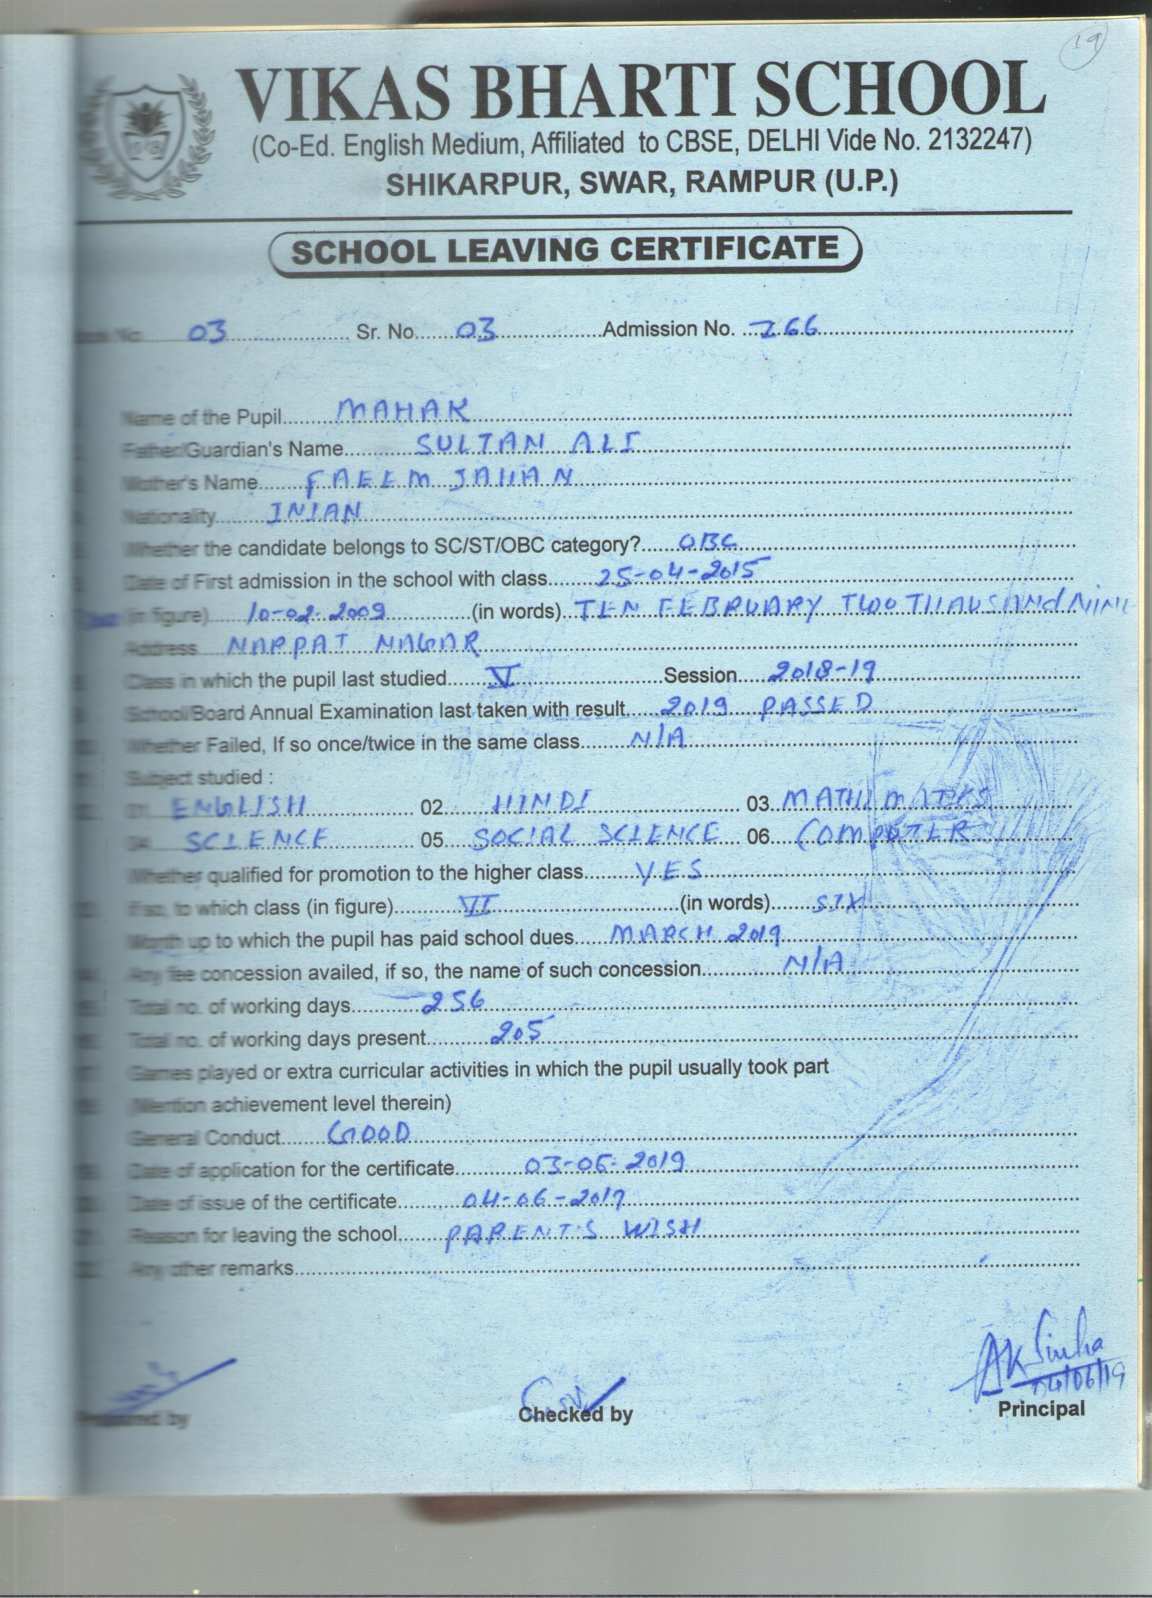 19
VIKAS BHARTI SCHOOL
(Co-Ed. English Medium, Affiliated to CBSE, DELHI Vide No. 2132247)
SHIKARPUR, SWAR, RAMPUR (U.P.)
SCHOOL LEAVING CERTIFICATE
No. 03 Sr. No. 03 Admission No. 266
Name of the Pupil MAHAK
Father/Guardian's Name SULTAN ALI
Mother's Name FAEEM JAHAN
Nationality INIAN
Whether the candidate belongs to SC/ST/OBC category? OBC
Date of First admission in the school with class 25-04-2015
(in figure) 10-02-2009 (in words) TEN FEBRUARY TWO THAUSANd NINE
Address NARPAT NAGAR
Class in which the pupil last studied V Session 2018-19
School/Board Annual Examination last taken with result 2019 PASSED
Whether Failed, If so once/twice in the same class N/A
Subject studied :
01. ENGLISH 02. HINDI 03. MATHEMATICS
04. SCIENCE 05. SOCIAL SCIENCE 06. COMPUTER
Whether qualified for promotion to the higher class YES
If so, to which class (in figure) VI (in words) SIX
Month up to which the pupil has paid school dues MARCH 2019
Any fee concession availed, if so, the name of such concession N/A
Total no. of working days 256
Total no. of working days present 205
Games played or extra curricular activities in which the pupil usually took part
(Mention achievement level therein)
General Conduct GOOD
Date of application for the certificate 03-06-2019
Date of issue of the certificate 04-06-2019
Reason for leaving the school PARENT'S WISH
Any other remarks
AK Sinha
04/06/19
Prepared by Checked by Principal